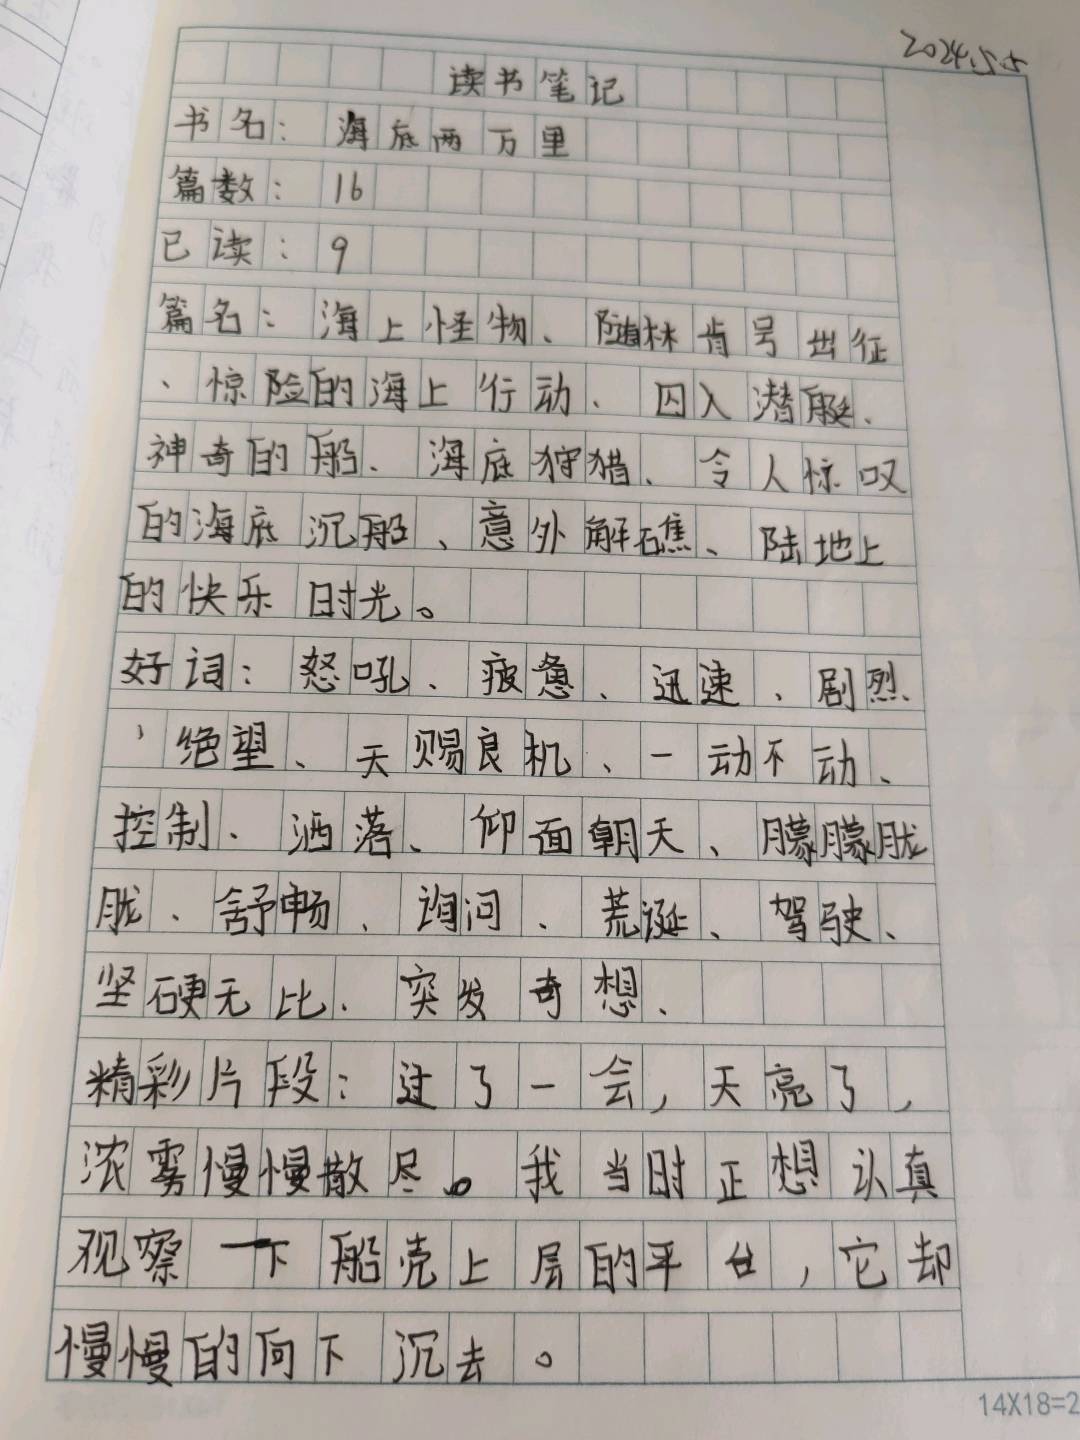 2024.5.5
读书笔记
书名：海底两万里
篇数：16
已读：9
篇名：海上怪物、随林肯号出征
、惊险的海上行动、囚入潜艇、
神奇的船、海底狩猎、令人惊叹
的海底沉船、意外解礁、陆地上
的快乐时光。
好词：怒吼、疲惫、迅速、剧烈、
、绝望、天赐良机、一动不动、
控制、洒落、仰面朝天、朦朦胧
胧、舒畅、询问、荒诞、驾驶、
坚硬无比、突发奇想、
精彩片段：过了一会，天亮了，
浓雾慢慢散尽。我当时正想认真
观察一下船壳上层的平台，它却
慢慢的向下沉去。
14X18=2